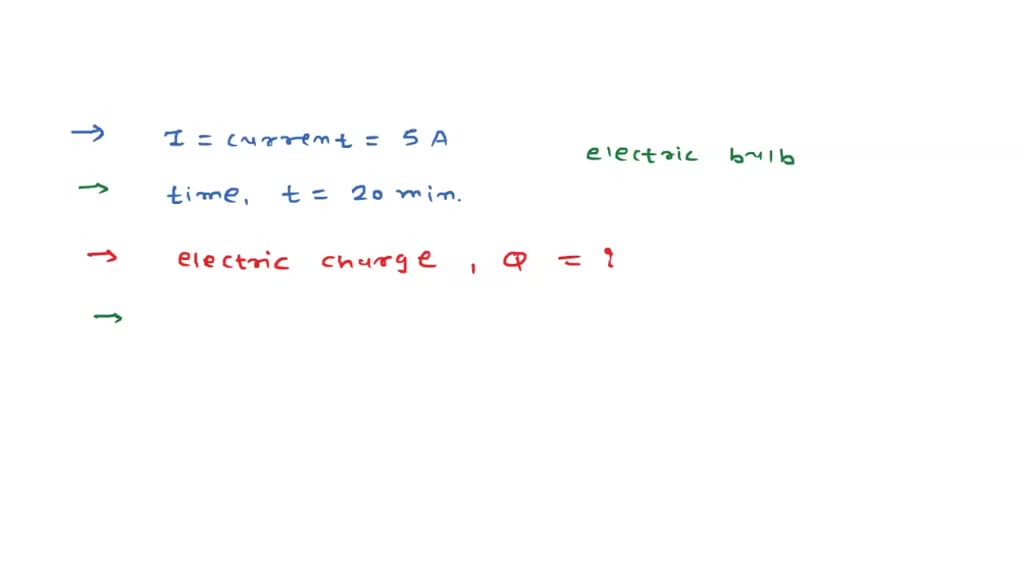 → I = current = 5 A
electric bulb
→ time, t = 20 min.
→ electric charge, Q = ?
→